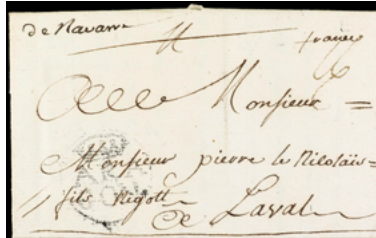 de Navarre
france
A Monsieur
Monsieur pierre le Nicolaïs
fils Rigott
de Laval